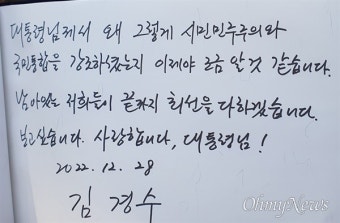 대통령님께서 왜 그렇게 시민민주주의와
국민통합을 강조하셨는지 이제야 조금 알 것 같습니다.
남아있는 저희들이 끝까지 최선을 다하겠습니다.
보고싶습니다. 사랑합니다, 대통령님!
2022. 12. 28
김 경 수
OhmyNews